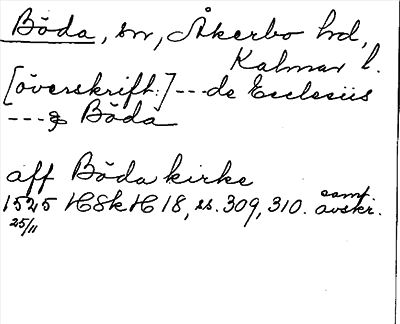 Böda, sn, Åkerbo hd,
Kalmar l.
[överskrift:] --- de Ecclesiis
--- Böda
aff Böda kirke
1525 HSkH 18, ss. 309, 310. samt. avskr.
25/11